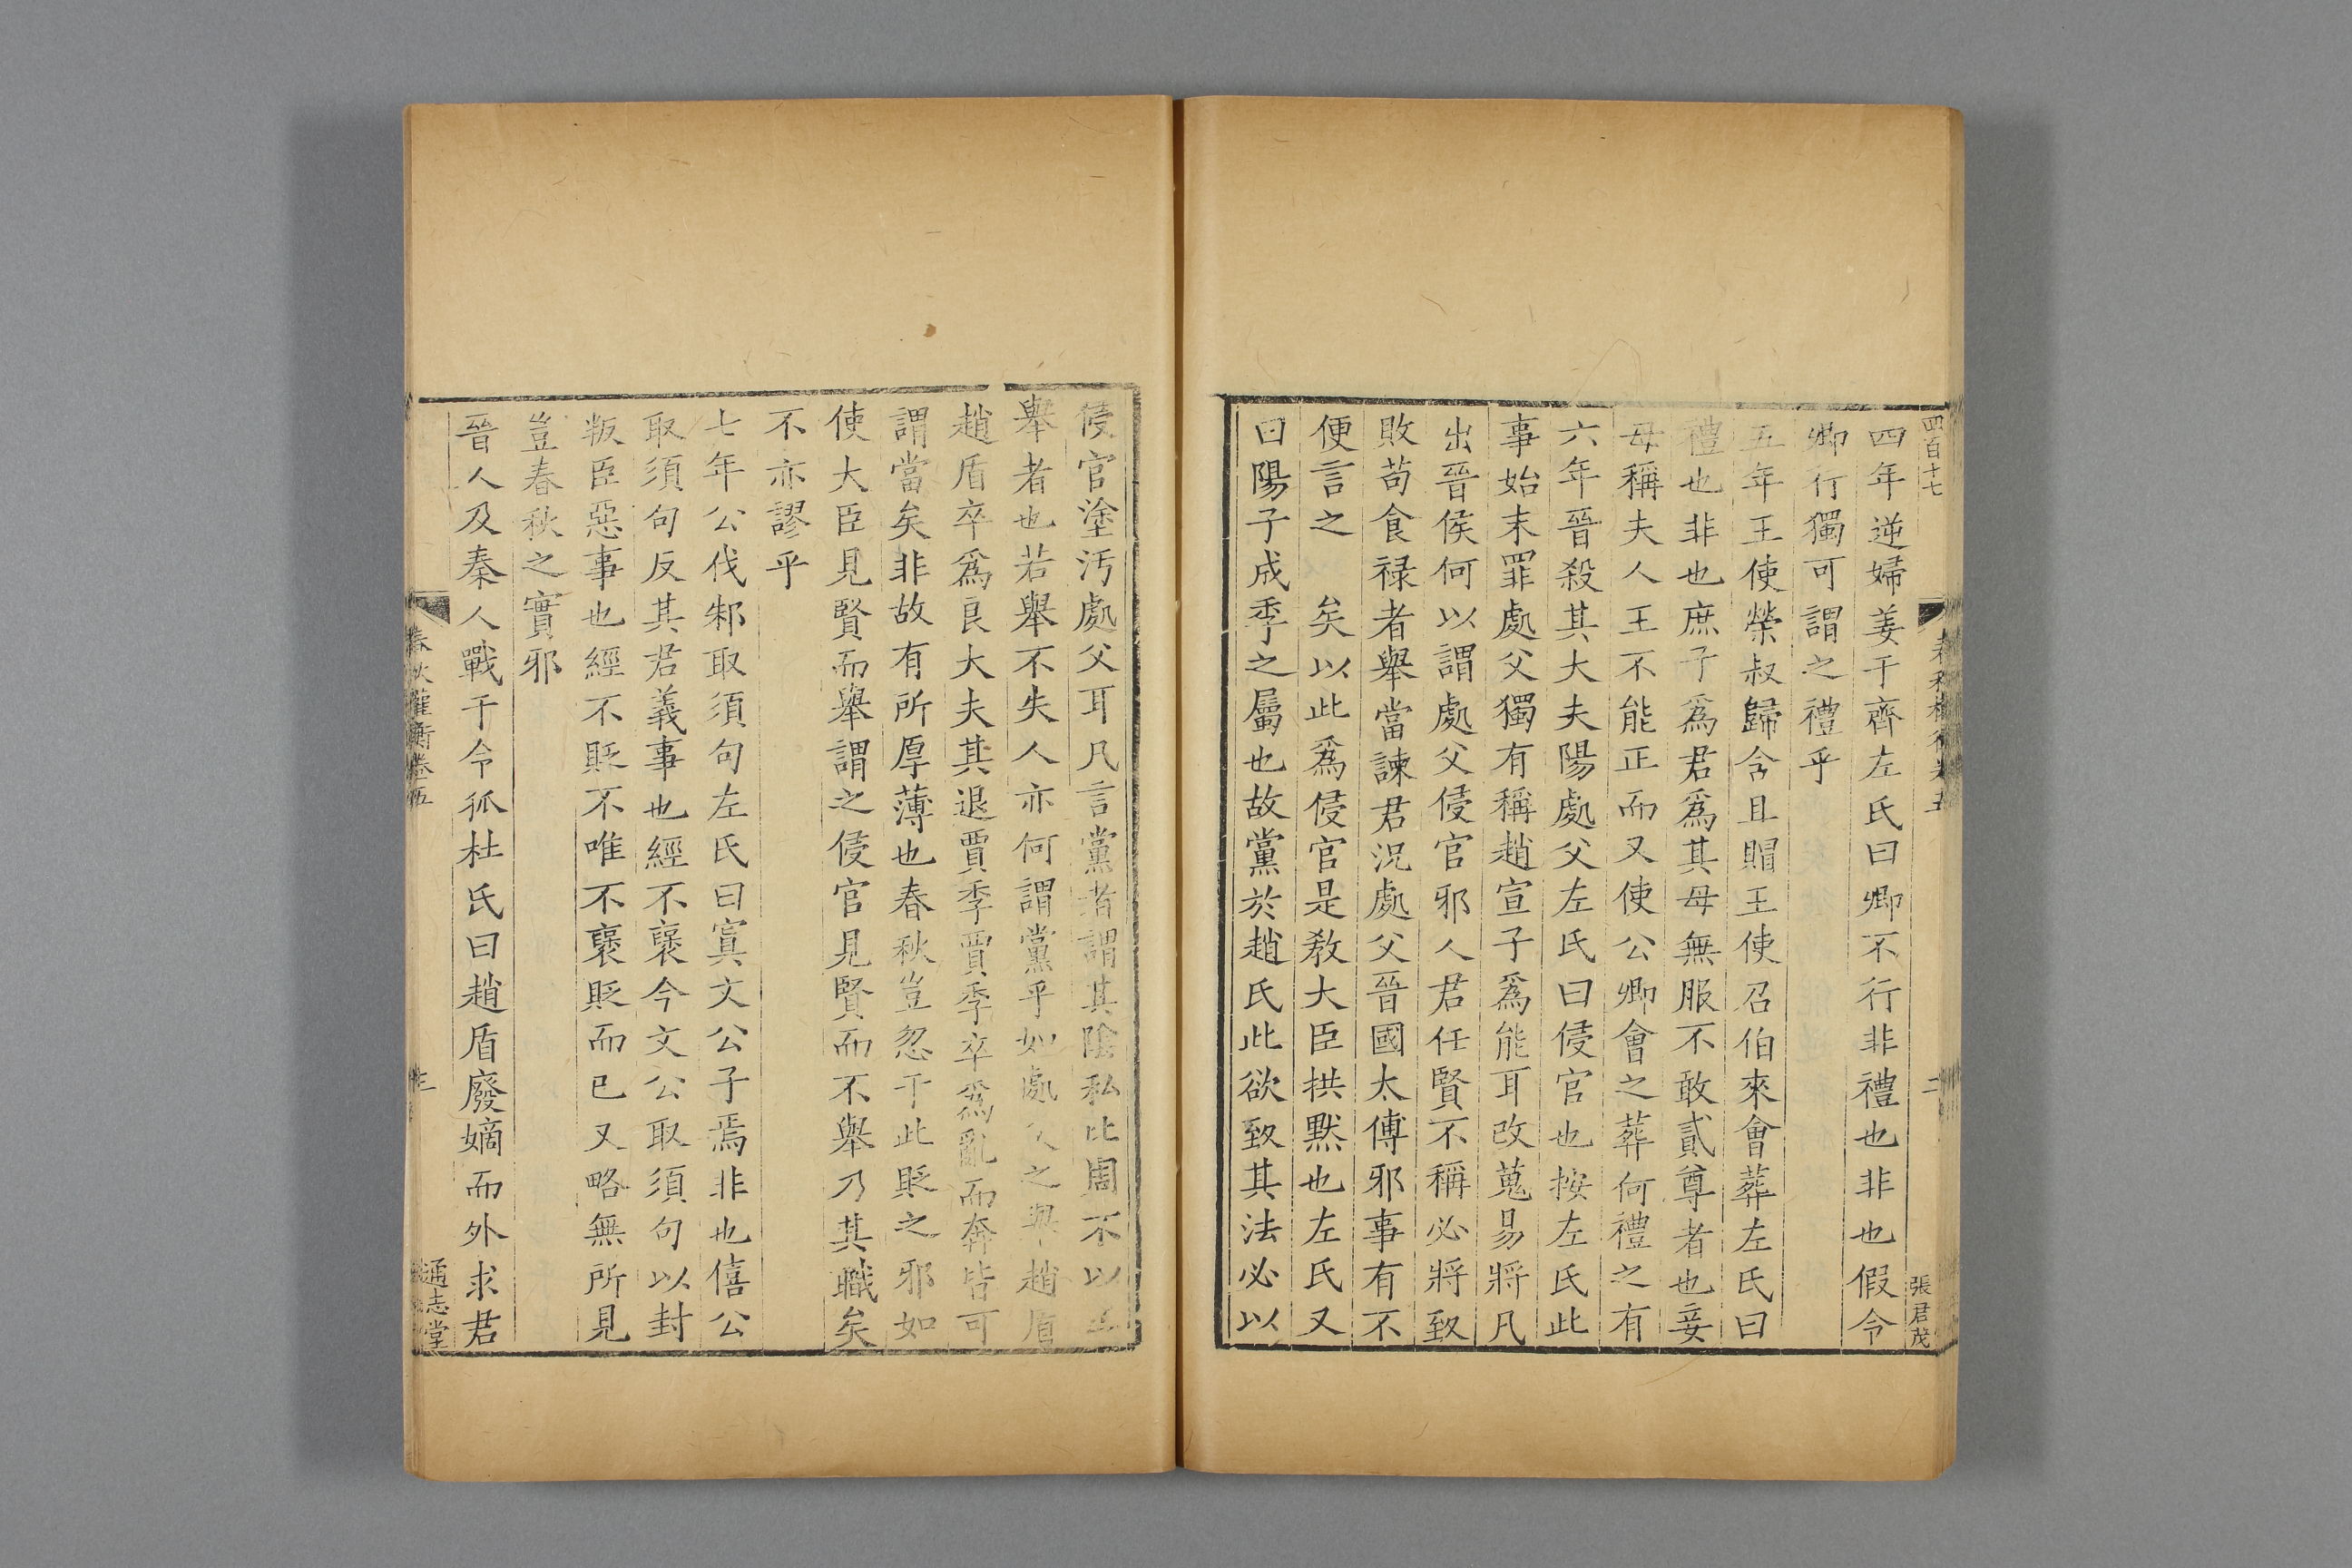 四百十七
春秋權衡卷五
二
張君茂
四年逆婦姜于齊左氏曰卿不行非禮也非也假令
卿行獨可謂之禮乎
五年王使榮叔歸含且賵王使召伯來會葬左氏曰
禮也非也庶子爲君爲其母無服不敢貳尊者也妾
母稱夫人王不能正而又使公卿會之葬何禮之有
六年晉殺其大夫陽處父左氏曰侵官也按左氏此
事始末罪處父獨有稱趙宣子爲能耳改蒐易將凡
出晉侯何以謂處父侵官邪人君任賢不稱必將致
敗苟食禄者舉當諫君況處父晉國太傅邪事有不
便言之矣以此爲侵官是教大臣拱默也左氏又
曰陽子成季之屬也故黨於趙氏此欲致其法必以
侵官塗汚處父耳凡言黨者謂其陰私比周不以正
舉者也若舉不失人亦何謂黨乎如處父之舉趙盾
趙盾卒爲良大夫其退賈季賈季卒爲亂而奔皆可
謂當矣非故有所厚薄也春秋豈忽于此貶之邪如
使大臣見賢而舉謂之侵官見賢而不舉乃其職矣
不亦謬乎
七年公伐邾取須句左氏曰寘文公子焉非也僖公
取須句反其君義事也經不襃今文公取須句以封
叛臣惡事也經不貶不唯不襃貶而已又略無所見
豈春秋之實邪
晉人及秦人戰于令狐杜氏曰趙盾廢嫡而外求君
春秋權衡卷五
通志堂